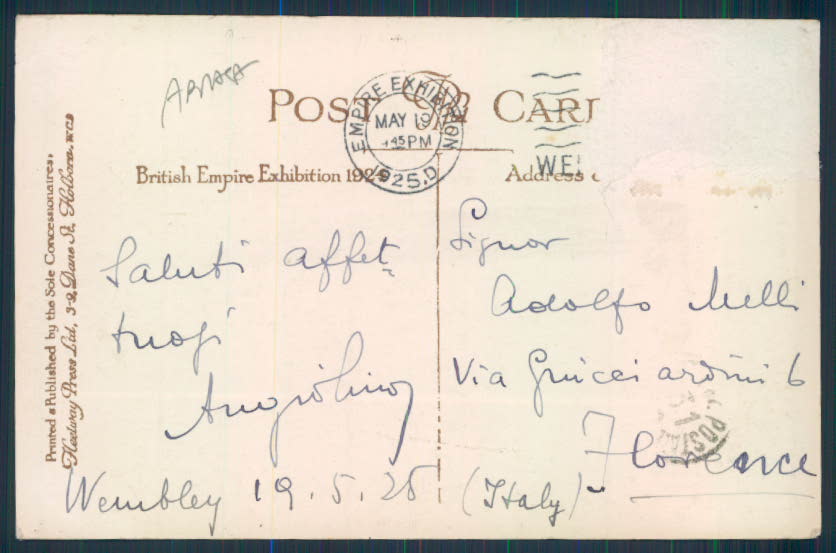 POST CARD
EMPIRE EXHIBITION
MAY 19
45 PM
1925.D
WE
British Empire Exhibition 1924
Address
Printed & Published by the Sole Concessionaires,
Fleetway Press Ltd, 3-9, Dane St, Holborn. W.C.1
Saluti affet-
tuosi
Angiolino
Wembley 19.5.25
Signor
Adolfo Melli
Via Guicciardini 6
Florence
(Italy)
POSTA